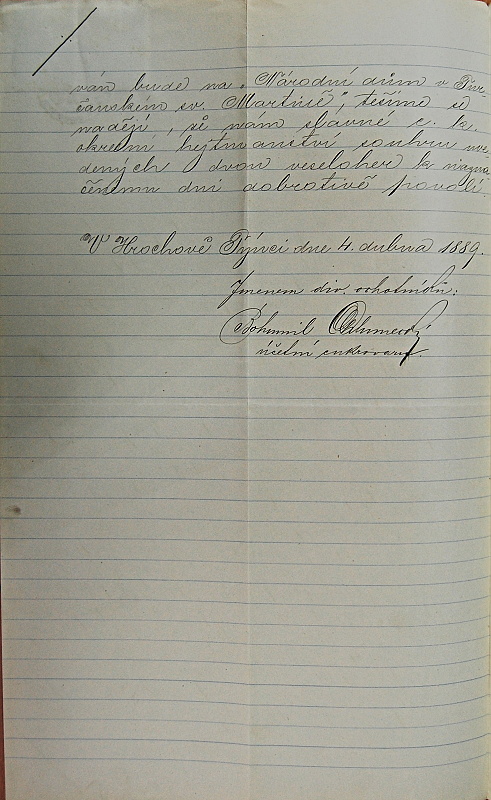 ván bude na „Národní dům v Tur-
čanském sv. Martině", těšíme se
nadějí, že nám slavné c. k.
okresní hejtmanství souhru uve-
dených dvou veseloher k nazna-
čenému dni dobrotivě povolí.
V Hrochově Týnci dne 4. dubna 1889.
Jmenem div. ochotníků:
Bohumil Chlumecký
účetní cukrovaru.